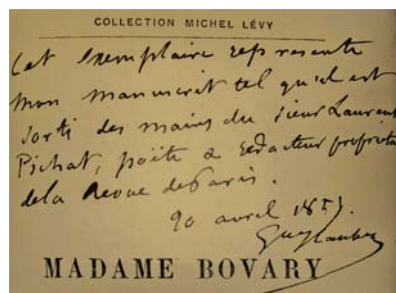 COLLECTION MICHEL LÉVY
Cet Exemplaire représente
mon manuscrit tel qu'il est
sorti des mains du sieur Laurent
Pichat, poëte & rédacteur proprietа
de la Revue de Paris.
20 avril 1857.
Gve Flaubert
MADAME BOVARY